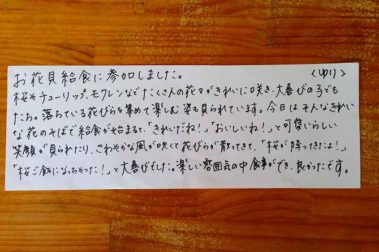 お花見給食に参加しました。 〈ゆり〉
桜やチューリップ、モクレンなどたくさんの花々がきれいに咲き、大喜びの子ども
たち。落ちている花びらを集めて楽しむ姿も見られています。今日はそんなきれい
な花のそばで給食が始まると、「きれいだね!」「おいしいね!」と可愛いらしい
笑顔が見られたり、さわやかな風が吹くと花びらが舞ってきて、「桜が降ってきたよ!」
「桜ご飯になっちゃった!」と大喜びでした。楽しい雰囲気の中食事ができ、良かったです。